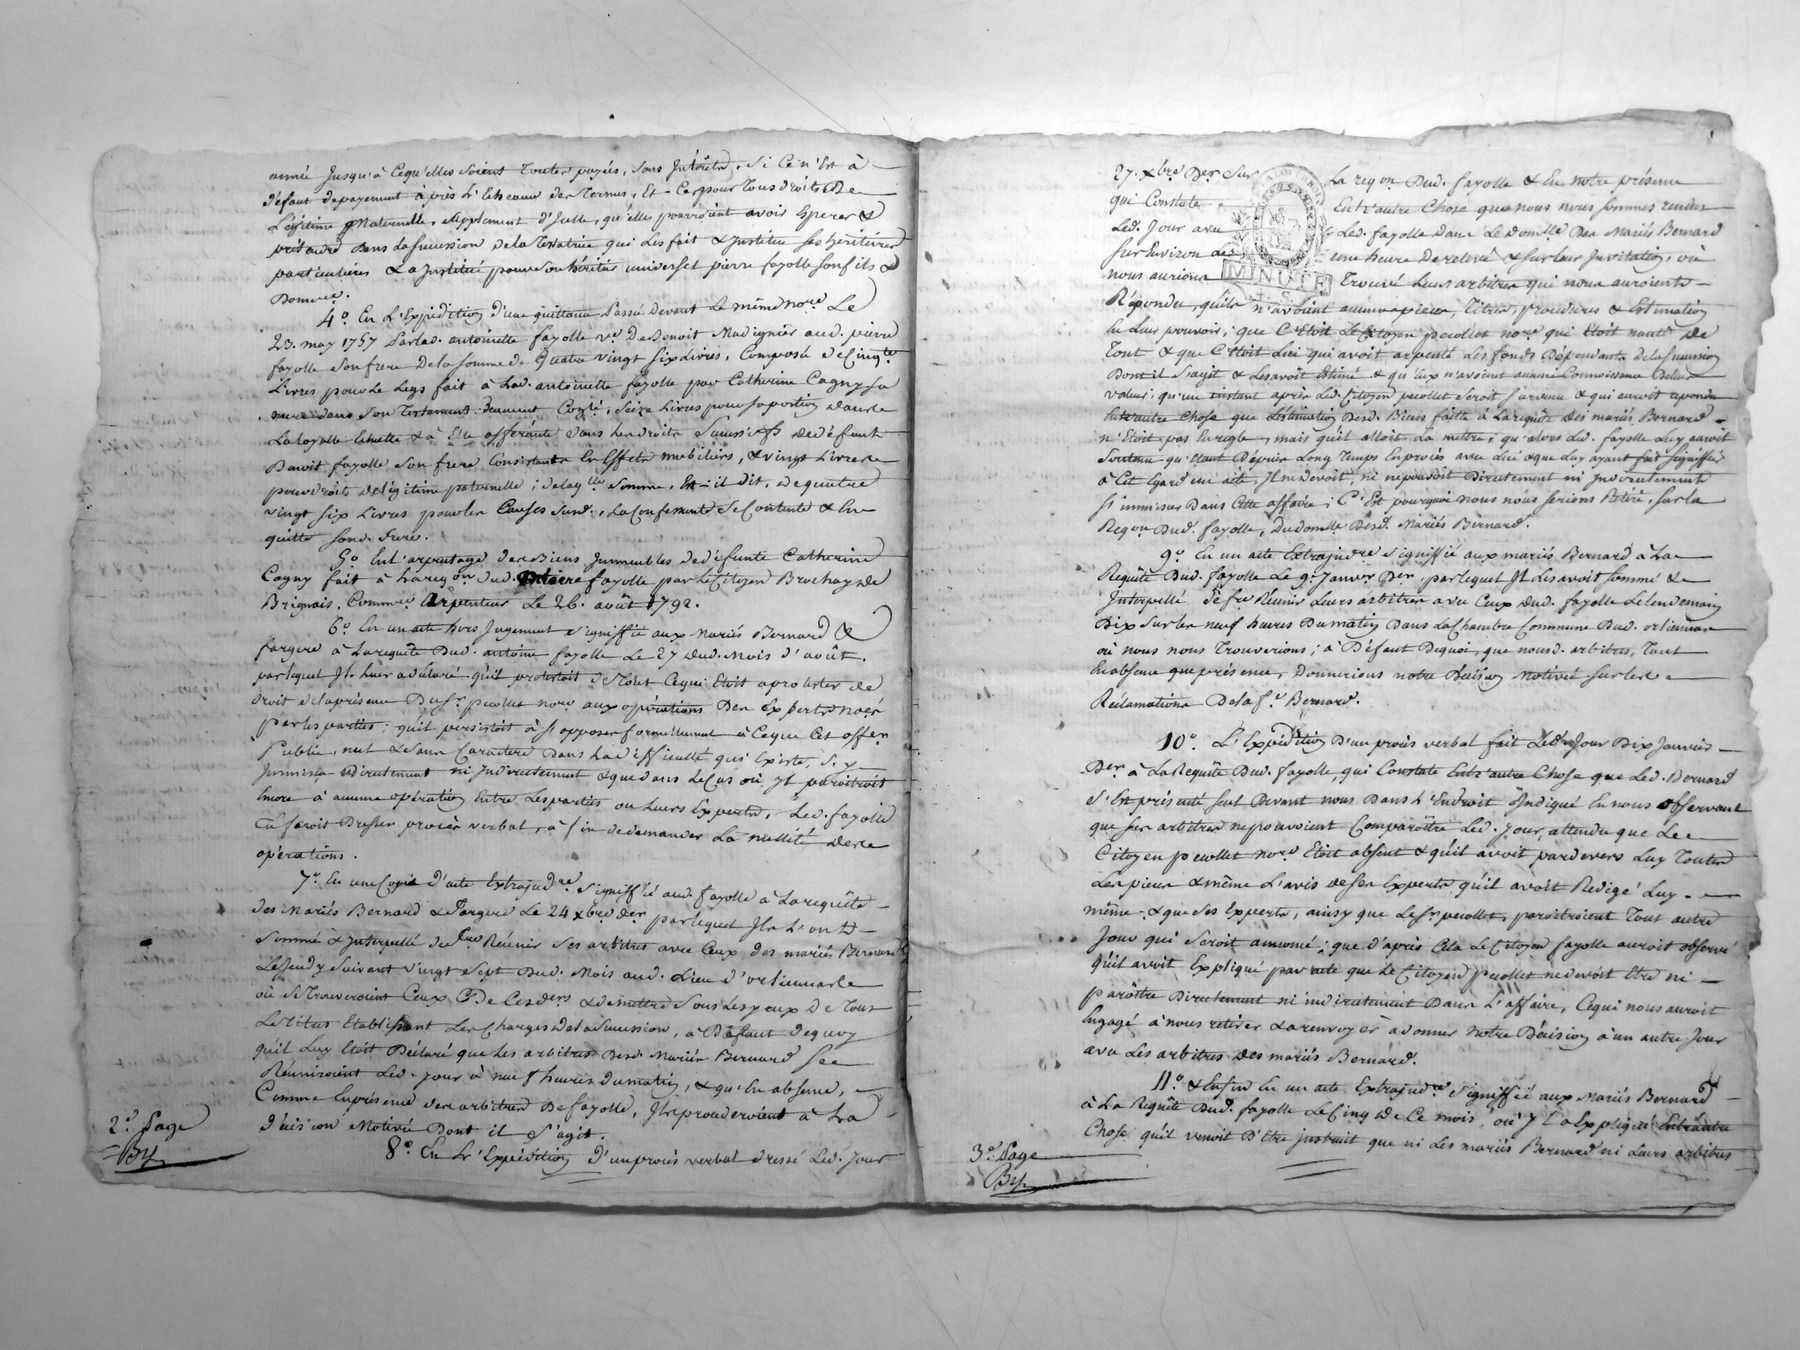 année Jusqu'à Cequ'elles Soient Toutes payées, Sans Intérêts, Si Ce n'Est à
déffaut depayement après L'Echeance des Termes, Et Ce pour Tous droits De
Légitime Maternelle, Supplement d'Icelle, qu'elles pourroient avoir Esperer &
prétendre Dans La Succession De la Testatrice qui Les fait & Institue Ses héritières
particulières & a Institué pour Son héritier universel pierre fayolle Son fils &
Donnee.
4.° En L'Expédition d'une quittance Passé Devant Le même Nore Le
23. may 1757 Par lad. antoinette fayolle ve. De Benoit Madignier aud. pierre
fayolle Son frere De la Somme de Quatre vingt Six Livres, Composée de Cinqte.
Livres pour Le Legs fait à Lad. antoinette fayolle par Catherine Cagny Sa
mere dans Son Testament Dument Cotté, Seize Livres pour Sa portion dans
La & à Elle afférante dans Les droits Successifs de défunt
Benoit fayolle Son frere Consistants En Effets mobiliers, & vingt Livres
pour droits de Légitime paternelle; delaqlle Somme, Est-il dit, de quatre
vingt Six Livres pour Les Causes Susd., La Confessante Se Contente & En
quitte Sond. frere.
5.° En L'arpentage des Biens Immeubles de défunte Catherine
Cagny fait à La reqon dud. fayolle par Le Citoyen Brochay de
Brignais, Comme Arpenteur Le 26. août 1792.
6.° En un acte hors Jugement Signiffié aux Mariés Bernard &
fargere à La requête Dud. antoine fayolle Le 27 dud. Mois d'août,
par lequel Il Leur a déclaré qu'il protestoit De Tout Ce qui Etoit à protester de
droit de la présence Du Sr. peollet nore aux opérations Des Experts nommés
par Les parties; qu'il persistoit à S'opposer formellement à Ceque Cet officier
Public, nul & Sans Caractere Dans La difficulté qui Existe, S'y
Immisça directement ni Indirectement & que dans Le Cas où Il paroitroit
Encore à aucune opération Entre Les parties ou Leurs Experts, Led. fayolle
En feroit Dresser procès verbal, à fin de demander La nullité desd.
opérations.
7.° En une Copie d'acte Extrajudre. Signiffié aud. fayolle à La requête
des Mariés Bernard & fargere Le 24 xbre der par lequel Ils L'ont
Sommé & Interpellé de faire Réunir Ses arbitres avec Ceux des mariés Bernard
Le Jeudy Suivant vingt Sept Dud. Mois aud. Lieu d'orlienas
où Se Trouveroient Ceux De Ces ders & de mettre Sous Les yeux De Tous
Les titres Etablissant Les Charges de la Succession, à Défaut de quoy
qu'il Luy Etoit Déclaré que Les arbitres Desd. Mariés Bernard Se
Réuniroient Led. Jour à neuf heures du matin, & qu'En absence,
Comme En présence des arbitres De fayolle, Ils procederoient à La
décision Motivée Dont il S'agit.
8.° En L'Expédition d'un procès verbal dressé Led. Jour
2.e Page
27. xbre Der Sur La reqon Dud. fayolle & En notre présence
qui Constate Entr'autre Chose que nous nous Sommes rendus
Led. Jour avec Led. fayolle dans Le Domlle Des Mariés Bernard
Sur Environ Les une heure De relevé & Sur Leur Invitation, où
nous aurions Trouvé Leurs arbitres qui nous auroient
MINUTE
Répondu, qu'ils n'avoient aucune pieces, Titres, Procédures & Estimation
En Leur pouvoir, que C'Etoit Le Citoyen peollet nore qui Etoit nanti De
Tout & que C'Etoit Lui qui avoit arpenté Les fonds Dépendants de la Succession
Dont il S'agit & Les avoit Estimé & qu'Eux n'avoient aucune Connoissance De Leur
valeur; qu'un instant après Led. Citoyen peollet Seroit Survenu & qui auroit repondu
Entr'autre Chose que L'Estimation Desd. Biens faitte à La requête des mariés Bernard
n'Etoit pas En regle, mais qu'il alloit La mettre; qu'alors Led. fayolle Luy auroit
Soutenu qu'Etant Depuis Long Temps En procès avec Lui & que Luy ayant fait Signiffier
à Cet Egard un acte, Il ne devoit, ni ne pouvoit Directement ni Indirectement
S'immiscer Dans Cette affaire; C'Est pourquoi nous nous Serions Retiré, Sur La
Reqon Dud. fayolle, Du domlle Desd. Mariés Bernard.
9.° En un acte Extrajudre Signiffié aux mariés Bernard à La
Requête Dud. fayolle Le 9. Janvr Der, par lequel Il Les avoit Sommé &
Interpellé De fre Réunir Leurs arbitres avec Ceux dud. fayolle Le Lendemain
Dix Sur Les neuf heures Du matin Dans La Chambre Commune Dud. orlienas
où nous nous Trouverions; à Défaut Dequoi, que nousd. arbitres, Tant
En absence que présence, Donnerions notre Décision Motivée Sur Les
Réclamations De la fe. Bernard.
10.° L'Expédition D'un procès verbal fait Led. Jour Dix Janvier
Der à La Requête Dud. fayolle, qui Constate Entr'autre Chose que Led. Bernard
S'Est présenté Seul Devant nous Dans L'Endroit Indiqué En nous observant
que Ses arbitres ne pouvoient Comparoître Led. Jour, attendu que Le
Citoyen peollet nore. Etoit absent & qu'il avoit pardevers Luy Toutes
Les pieces & même L'avis de Ses Experts qu'il avoit Redigé Luy-
même, & que Ses Experts, ainsy que Le Sr peollet, paroitroient Tout autre
Jour qui Seroit annoncé; que d'après Cela Le Citoyen fayolle auroit observé
qu'il avoit Expliqué par acte que Le Citoyen peollet ne devoit Etre ni
parôitre Directement ni indirectement Dans L'affaire, Cequi nous auroit
Engagé à nous retirer & à renvoyer à donner notre Décision à un autre Jour
avec Les arbitres des mariés Bernard.
11.° & Enfin En un acte Extrajudre Signiffié aux Mariés Bernard
à La Requête Dud. fayolle Le Cinq de Ce mois, où Il a Expliqué Entr'autre
Chose qu'il venoit D'Etre instruit que ni Les mariés Bernard ni Leurs arbitres
3.e Page